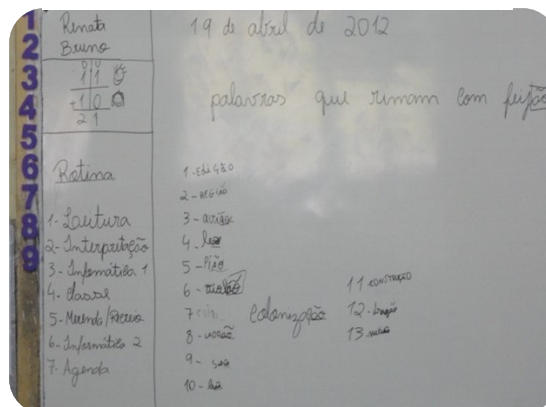 1
2
3
4
5
6
7
8
9
Renata
Bruno
D U
1 1
+ 1 0
2 1
Rotina
1- Leitura
2- Interpretação
3- Informática 1
4- classe
5- Merenda/Recreio
6- Informática 2
7- Agenda
19 de abril de 2012
palavras que rimam com feijão
1 - Edição
2 - REGIÃO
3 - avião
4 - leão
5 - Pião
6 -
7
colonização
8 -
9 -
10 -
11 CONSTRUÇÃO
12 -
13